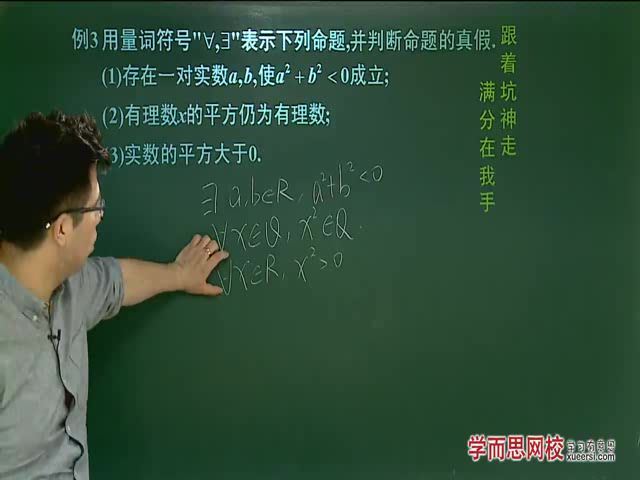 例3 用量词符号"∀,∃"表示下列命题,并判断命题的真假.
(1)存在一对实数a,b,使a²+b²<0成立;
(2)有理数x的平方仍为有理数;
3)实数的平方大于0.
∃ a,b∈R, a²+b²<0
∀x∈Q, x²∈Q.
∀x∈R, x²>0
跟着坑神走
满分在我手
学而思网校
xueersi.com